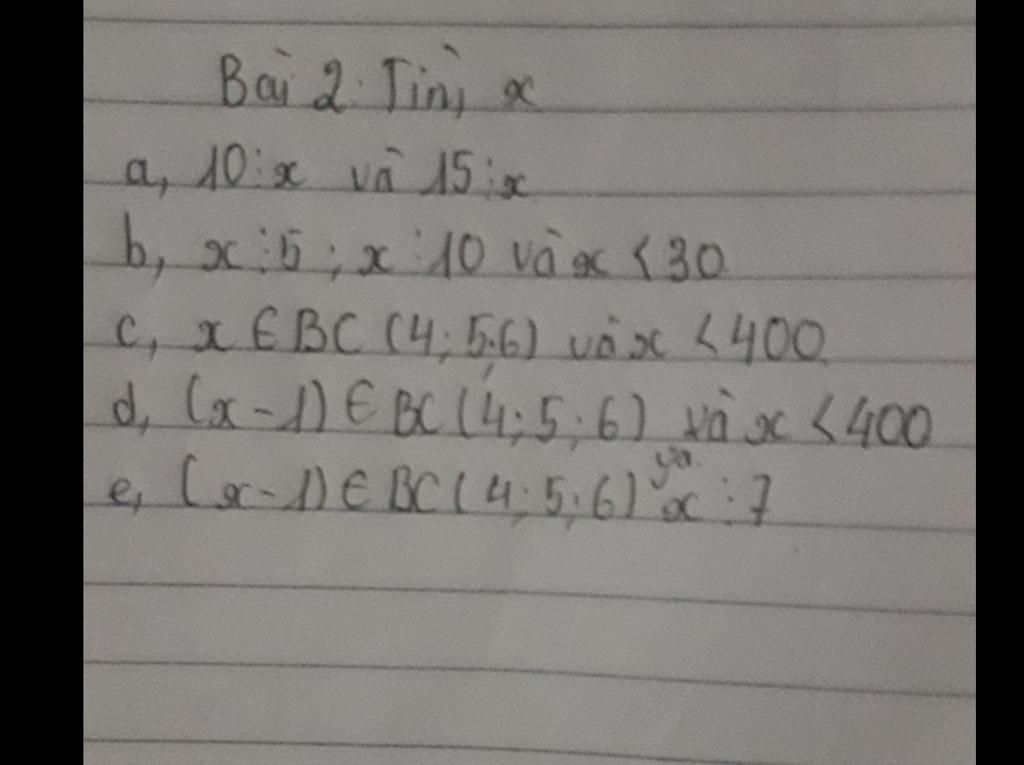 Bài 2: Tìm x
a, 10⋮x và 15⋮x
b, x⋮5; x⋮10 và x <30
c, x ∈ BC (4; 5; 6) và x <400
d, (x-1) ∈ BC (4; 5; 6) và x <400
e, (x-1) ∈ BC (4; 5; 6) và x⋮7